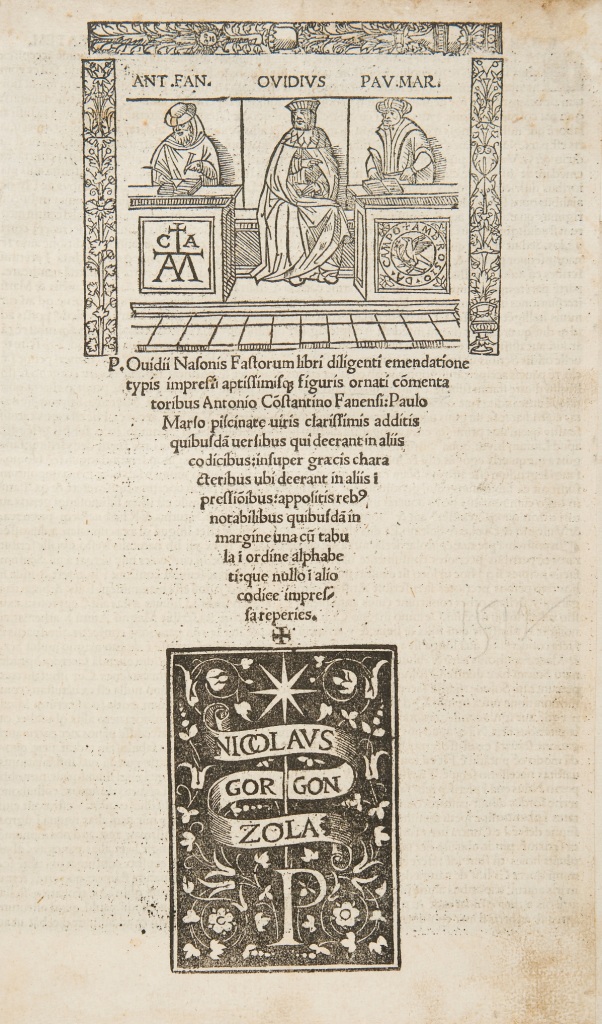 ANT.FAN. OVIDIVS PAV.MAR.
C A
AM
DA·CAMPO·FAMOROSTO·
P. Ouidii Nasonis Fastorum libri diligenti emendatione
typis impressi aptissimisq; figuris ornati cōmenta
toribus Antonio Cōstantino Fanensi:Paulo
Marso piscinate uiris clarissimis additis
quibusdā uersibus qui deerant in aliis
codicibus:insuper græcis chara
cteribus ubi deerant in aliis ī
pressiōibus:appositis rebꝰ
notabilibus quibusdā in
margine una cū tabu
la ī ordine alphabe
ti:que nullo ī alio
codice impres⸗
sa reperies.
NICOLAVS
GOR GON
ZOLA
P